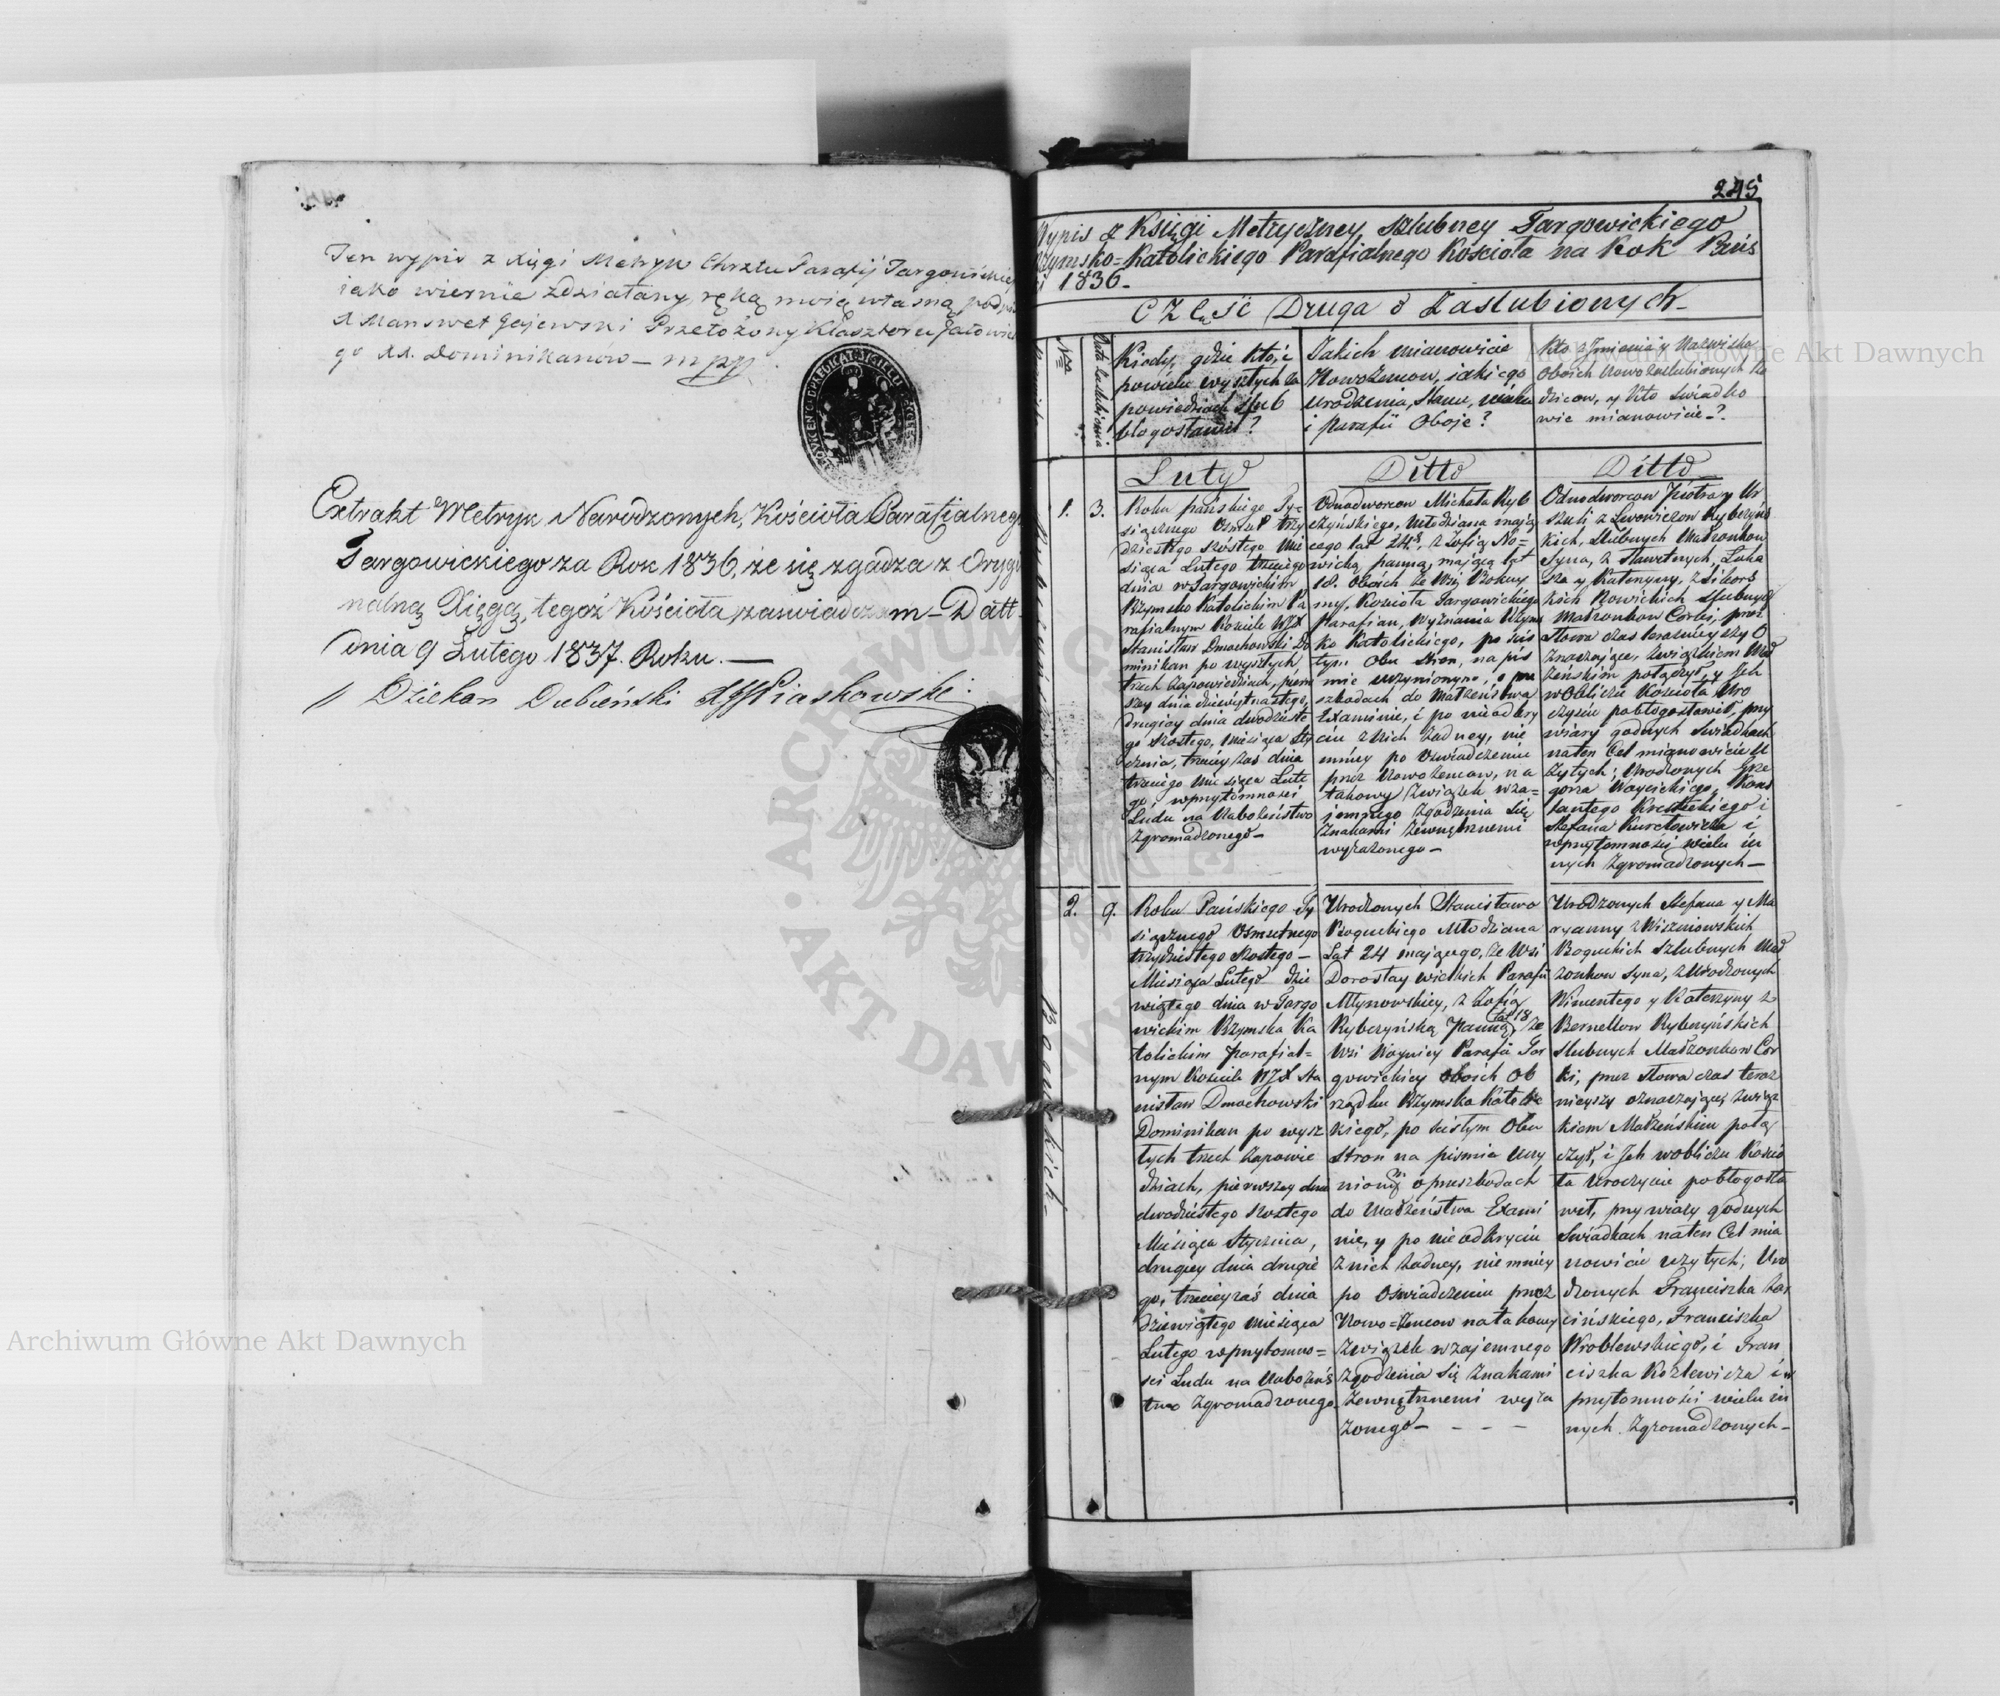 Ten wypis z Xięgi Metryk Chrztu Parafij Targowickiey
iako wiernie zdziałany, ręką moią własną podpis
X Manswet Gajewski Przełożony Klasztoru Jałowic
go XX. Dominikanów – mpp
Extrakt Metryk Narodzonych, Kościoła Parafialnego
Targowickiego za Rok 1836, że się zgadza z Orygi
nalną Xięgą, tegoż Kościoła, zaświadczam – Datt
dnia 9 Lutego 1837. Roku. —
Dziekan Dubieński X Piaskowski
245.
Wypis z Księgi Metryczney Szlubney Targowickiego
Rzymsko=Katolickiego Parafialnego Kościoła na Rok Pańs
ki 1836.
Część Druga o Zaslubionych
Data Zaslubienia
Kiedy, gdzie kto, i
powielu wyszłych za
powiedziach szlub
błogosławił?
Jakich mianowicie
Nowożencow, iakiego
Urodzenia, Stanu, wieku
i Parafii Oboje?
Kto z Jmienia y Nazwiska
Oboich Nowozaslubionych Ro
dzicow, y Kto Swiadko
wie mianowicie?
Luty
Ditto
Ditto
1.
3.
Roku Pańskiego Ty=
siącznego Osmset trzy
dziestego szóstego Mie
siąca Lutego trzeciego
dnia w Targowickim
Rzymsko Katolickim Pa
rafialnym Kościele WJX
Stanisław Dmochowski Do
minikan po wyszłych
trzech Zapowiedziach, pierw
szey dnia dziewiętnastego,
drugiey dnia dwudzieste
go szostego, Miesiąca Sty
cznia, trzeciey zaś dnia
trzeciego Miesiąca Lute
go, w przytomności
Ludu na Nabożeństwo
Zgromadzonego –
Odnodworcow Michała Ryb
czyńskiego, Młodziana mają
cego lat 24, z Zofią No=
wicką panną, mającą lat
18. Oboich ze Wsi Bokuy
my, Kościoła Targowickiego
Parafian, Wyznania Rzyms
ko Katolickiego, po ścis
łym Obu Stron, na piś
mie uczynionym, o prze
szkodach do Małżeństwa
Examinie, i po nieodkry
ciu z Nich żadney, nie
mniey po Oświadczeniu
przez Nowożencow, na
takowy Związek wza=
jemnego Zgodzenia Się
Znakami Zewnętrznemi
wyrażonego –
Odnodworcow Piotra y Ur
szuli z Lwowiczow Rybczyńs
kich, Slubnych Małżonkow
Syna, z Sławetnych, Łuka
sza y Katarzyny, z Sikors
kich Nowickich Slubnych
Małżonkow Corką, przez
Słowa czas teraźnieyszy O
znaczające, Związkiem Mał
żeńskim połączył, y Jch
w Obliczu Kościoła Uro
czyście pobłogosławił, przy
wiary godnych Swiadkach
na ten Cel mianowicie U
żytych; Urodzonych Grze
gorza Woycickiego, Kons
tantego Kreskiekiego i
Stefana Kurełowicza i
w przytomności wielu in
nych Zgromadzonych –
2.
9.
Roku Pańskiego Ty
siącznego Osmsetnego
trzydziestego Szostego –
Miesiąca Lutego Dzie
wiątego dnia w Targo
wickim Rzymsko Ka
tolickim parafial=
nym Kościele WJX Sta
nisław Dmochowski
Dominikan po wysz
łych trzech Zapowie
dziach, pierwszey dnia
dwudziestego szostego
Miesiąca Stycznia,
drugiey dnia drugie
go, trzeciey zaś dnia
dziewiątego Miesiąca
Lutego w przytomno=
ści Ludu na Nabożeńs
two Zgromadzonego
Urodzonych Stanisława
Roguckiego Młodziana
Lat 24 mającego, ze Wsi
Dorostay wielkich Parafii
Młynowskiey, z Zofią
Rybczyńską Panną lat 18 ze
Wsi Woynicy Parafii Tar
gowickiey Oboich Ob
rządku Rzymsko Katolic
kiego, po ścisłym Obu
Stron na piśmie uczy
nionym o przeszkodach
do Małżeństwa Exami
nie, y po nieodkryciu
z nich żadney, niemniey
po Oświadczeniu przez
Nowo=żencow na takowy
Związek wzajemnego
Zgodzenia Się Znakami
Zewnętrznemi wyra
żonego – – – –
Urodzonych Stefana y Ma
ryanny z Wiszniowskich
Roguckich Szlubnych Mał
żonkow Syna, z Urodzonych
Wincentego y Katarzyny z
Bernellow Rybczyńskich
Slubnych Małżonkow Cor
ką, przez Słowa czas teraz
nieyszy oznaczające, Związ
kiem Małżeńskim połą
czył, i Jch w obliczu Kościo
ła Uroczyście pobłogosła
wił, przy wiary godnych
Swiadkach na ten Cel mia
nowicie użytych; Uro
dzonych Franciszka Zar
cińskiego, Franciszka
Wroblewskiego, i Fran
ciszka Kozlewicza i w
przytomności wielu in
nych Zgromadzonych –
Archiwum Główne Akt Dawnych
Archiwum Główne Akt Dawnych
ARCHIWUM GŁÓWNE
AKT DAWNYCH